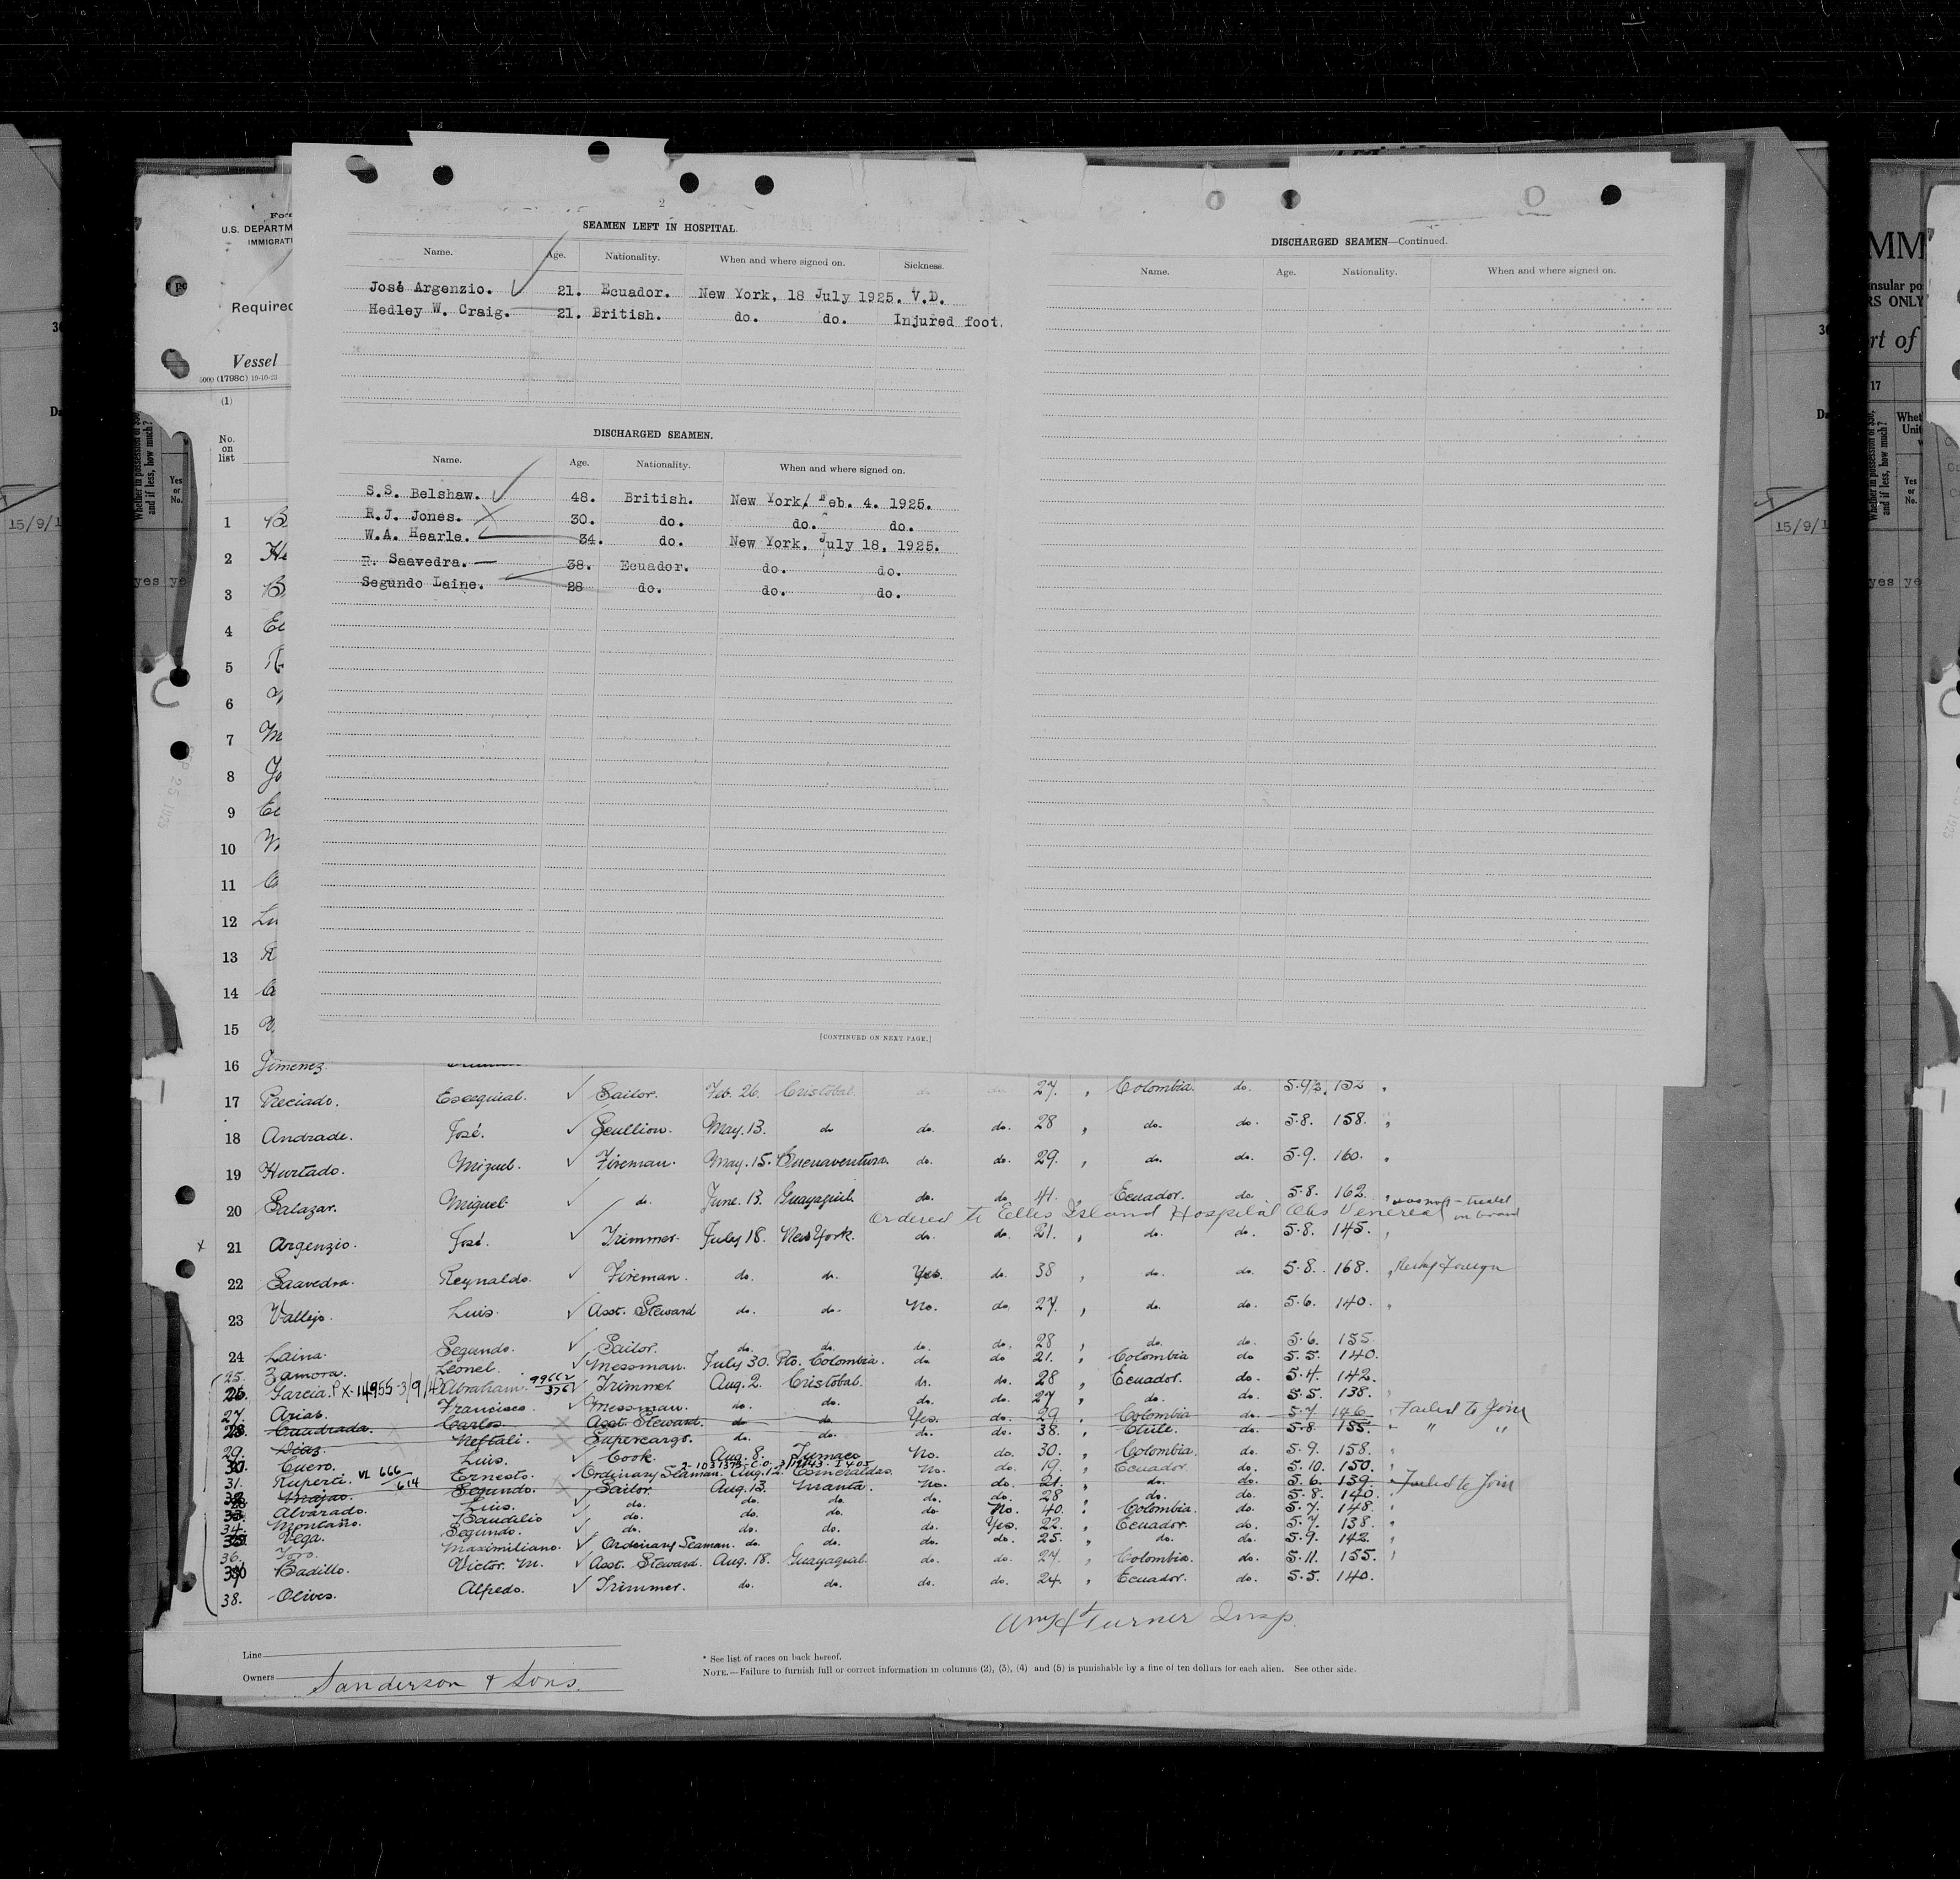 2
SEAMEN LEFT IN HOSPITAL.
Name. Age. Nationality. When and where signed on. Sickness.
José Argenzio. 21. Ecuador. New York, 18 July 1925. V.D.
Hedley W. Craig. 21. British. do. do. Injured foot.
DISCHARGED SEAMEN.
Name. Age. Nationality. When and where signed on.
S.S. Belshaw. 48. British. New York, Feb. 4. 1925.
R.J. Jones. 30. do. do. do.
W.A. Hearle. 34. do. New York, July 18, 1925.
R. Saavedra. 38. Ecuador. do. do.
Segundo Laine. 28 do. do. do.
[CONTINUED ON NEXT PAGE.]
DISCHARGED SEAMEN—Continued.
Name. Age. Nationality. When and where signed on.
U.S. DEPARTM
IMMIGRATI
Required
Vessel
5000 (1798C) 19-10-23
(1)
No. on list
1
2
3
4
5
6
7
8
9
10
11
12
13
14
15
16 Jimenez.
17 Preciado. Esequial. Sailor. Feb. 26. Cristobal. do. do. 27. Colombia. do. 5.9½. 152
18 Andrade. José. Scullion. May. 13. do do. do. 28 do. do. 5.8. 158.
19 Hurtado. Miguel. Fireman. May. 15. Buenaventura. do. do. 29. do. do. 5.9. 160.
20 Salazar. Miguel. do. June. 13. Guayaquil. do. do 41. Ecuador. do. 5.8. 162.
Ordered to Ellis Island Hospital Obs Venereal
treated on board
x 21 Argenzio. José. Trimmer. July 18. New York. do. do. 21. do. do. 5.8. 145.
22 Saavedra. Reynaldo. Fireman. do. do. Yes. do. 38 do. do. 5.8. 168. Foreign
23 Vallejo. Luis. Asst. Steward do. do. No. do. 27. do. do. 5.6. 140.
24 Laina. Segundo. Sailor. do. do. do. do. 28 do. do. 5.6. 155
25. Zamora. Leonel. Messman. July 30. Pto. Colombia. do do 21. Colombia do 5.5. 140.
26. Garcia. PX-14955-3/9/43 Abraham. Trimmer Aug. 2. Cristobal. do. do. 28 Ecuador. do. 5.4. 142.
27. Arias. Francisco. Messman. do. do. do. do. 27 do. do. 5.5. 138.
28 Cuadrada. Carlos. Asst. Steward. do do. Yes. do. 29. Colombia do. 5.7 146 Failed to Join
29. Diaz. Neftali. Supercargo. do. do. do. do. 38. Chile. do. 5.8 155. " "
30. Cuero. Luis. Cook. Aug. 8. Tumaco No. do. 30. Colombia. do. 5.9. 158.
31. Ruperti. VL 666/614 Ernesto. Ordinary Seaman. Aug. 12. Esmeraldas. No. do. 19. Ecuador do. 5.10. 150.
Segundo. Sailor. Aug. 13. Manta. No. do. 21. do. do. 5.6. 139. Failed to Join
33 Alvarado. Luis. do. do. do. do. do. 28 do. do. 5.8. 140.
34. Montaño. Baudilio do. do. do. do No. 40. Colombia. do. 5.7. 148.
35 Vega. Segundo. do. do. do. do. Yes. 22. Ecuador. do. 5.7. 138.
36. Toro. Maximiliano. Ordinary Seaman. do. do. do. do. 25. do. do. 5.9. 142.
Badillo. Victor. M. Asst. Steward. Aug. 18. Guayaquil. do. do. 27. Colombia. do. 5.11. 155.
38. Olives. Alfredo. Trimmer. do. do. do. do. 24. Ecuador. do. 5.5. 140.
Turner Insp.
Line
Owners Sanderson & Sons.
* See list of races on back hereof.
NOTE.—Failure to furnish full or correct information in columns (2), (3), (4) and (5) is punishable by a fine of ten dollars for each alien. See other side.
15/9/1
Whether in possession of $50, and if less, how much?
Yes or No.
yes ye
MM
insular po
RS ONLY
rt of
17
Whet
Unit
Whether in possession of $50, and if less, how much?
Yes or No.
15/9/1
yes ye